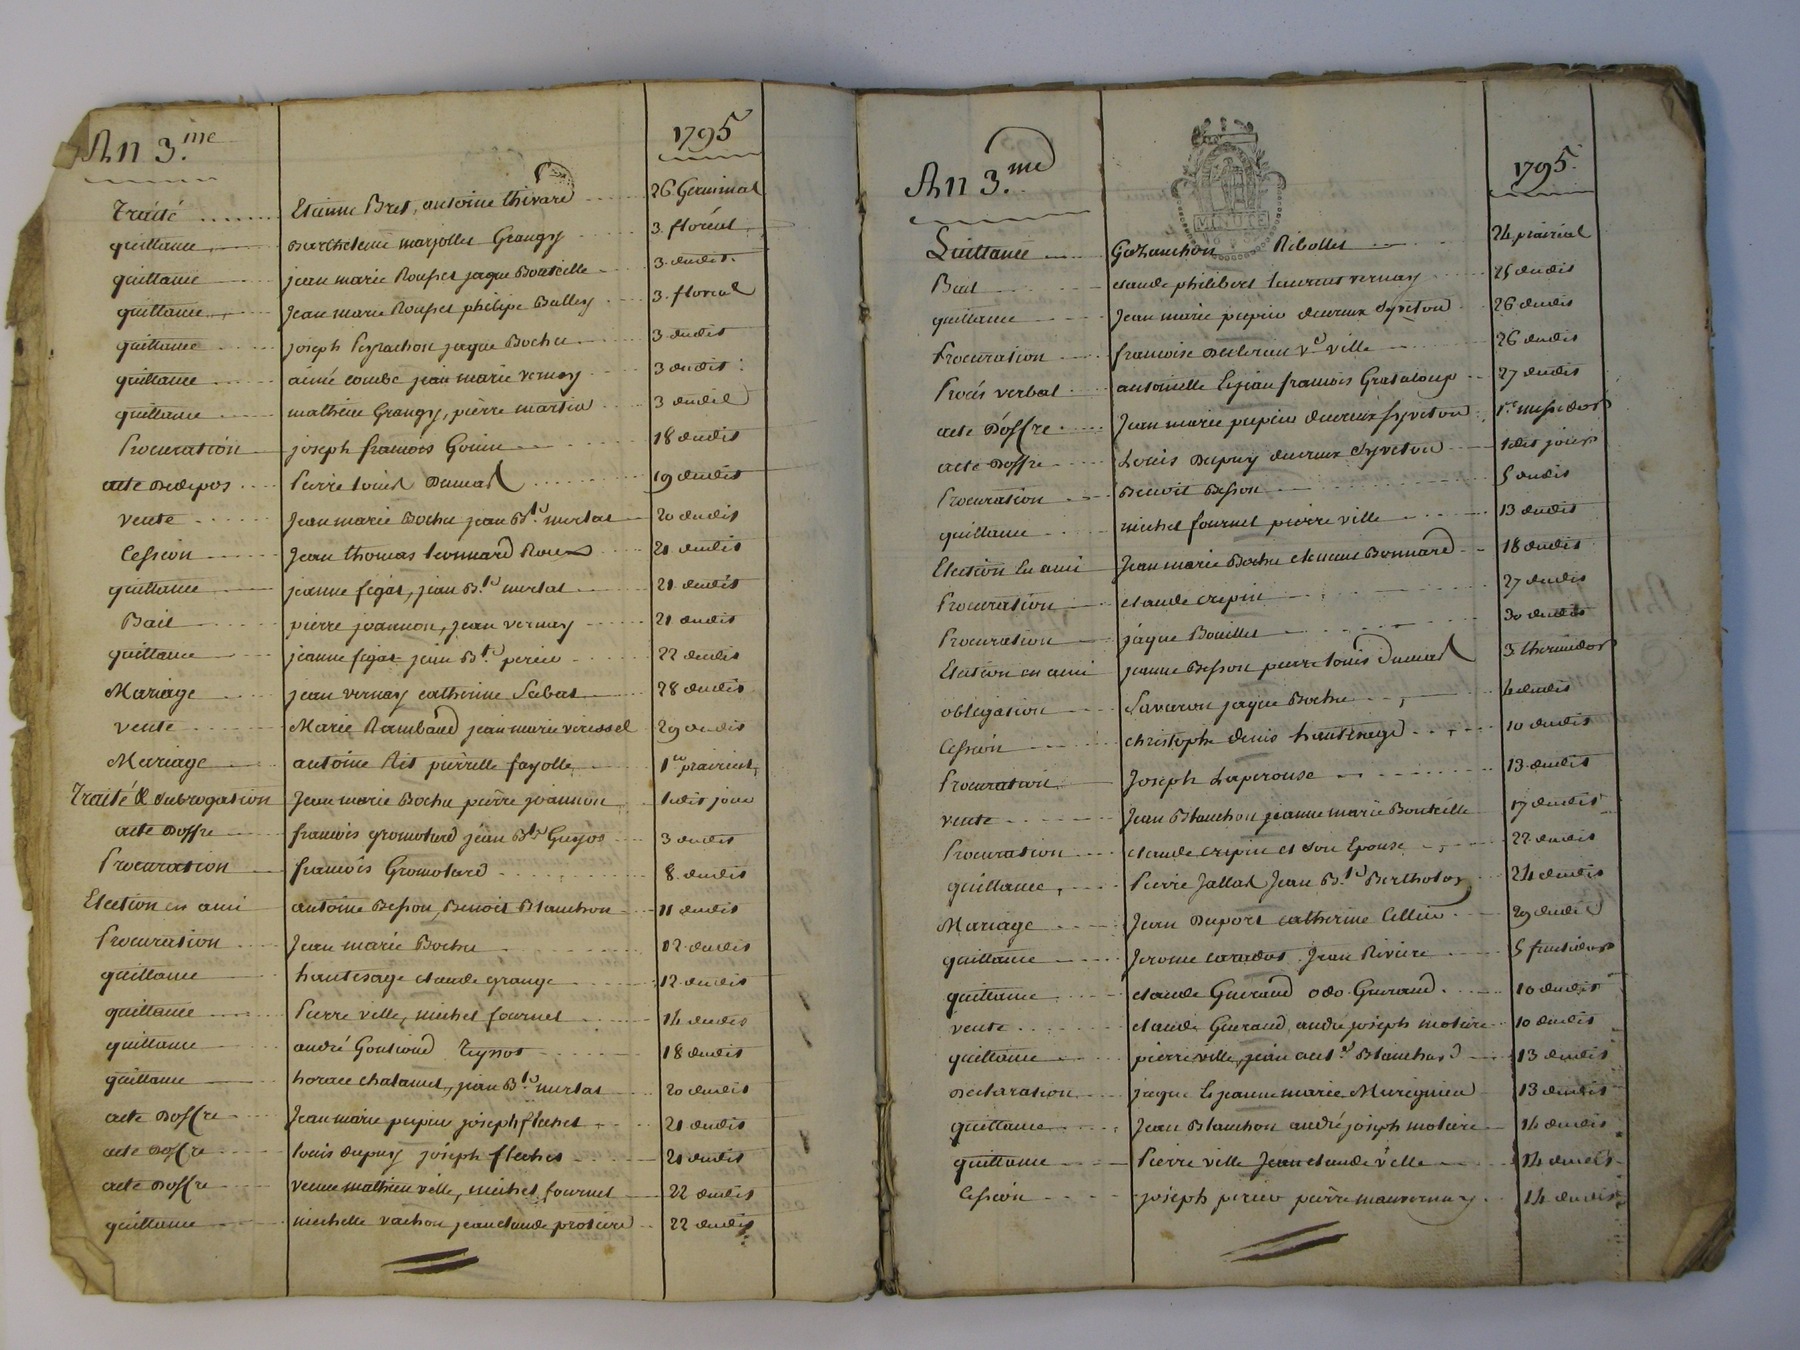 An 3.me 1795
Traité Etienne Bret, antoine thivard 26 Germinal
quittance Barthelemi marjollet Grangy 3. floréal
quittance jean marie Rousset jaque Bouteille 3. dudit.
quittance Jean marie Rousset philipe Balley 3. floreal
quittance joseph Peyrachon jaque Bochu 3 dudit
quittance aimé combe jean marie vernay 3 dudit
quittance mathieu Grangy, pierre martin 3 dudit
Procuration joseph francois Gonin 18 dudit
acte Dedepos Pierre Louis Dumas 19 dudit
vente Jean marie Bochu jean B.te 20 dudit
Cession Jean thomas leonnard Roux 21 dudit
quittance jeanne fegat, jean B.te 21 dudit
Bail pierre joannon, Jean vernay 21 dudit
quittance jeanne fegat jean B.te 22 dudit
Mariage jean vernay catherine Sabat 28 dudit
vente Marie Rambaud jean marie viricel 29 dudit
Mariage antoine pierrette fayolle 1er prairial
Traité & subrogation Jean marie Bochu pierre joannon dit jour
acte Doffre francois gromotard jean B.te Guyot 3 dudit
Procuration francois Gromotard 8. dudit
Election en ami antoine Besson, Benoit Blanchon 11 dudit
Procuration Jean marie Bochu 12 dudit
quittance hautesage claude grange 12 dudit
quittance Pierre ville, michel fournel 14 dudit
quittance andré Teyssot 18 dudit
quittance horace chalamel, jean B.te 20 dudit
acte Doffre Jean marie pupier joseph flechet 21 dudit
acte Doffre louis dupuy joseph flechet 21 dudit
acte Doffre veuve mathieu ville, michel fournel 22 dudit
quittance michelle vachon jean claude protiere 22 dudit
An 3.me 1795
MINUTE
Quittance Blanchon Ribollet 24 prairial
Bail claude philibert laurent vernay 25 dudit
quittance Jean marie pupier ducreux Syveton 26 dudit
Procuration francoise ve ville 26 dudit
Procés verbal antoinette francois Grataloup 27 dudit
acte Doffre Jean marie pupier ducreux Syveton 1er messidor
acte Doffre Louis Dupuy ducreux Syveton dit jour
Procuration Benoit Besson 5 dudit
quittance michel fournel pierre ville 13 dudit
Election En ami Jean marie Bochu clement Bonnard 18 dudit
Procuration claude crepin 27 dudit
Procuration jaque Bouillet 30 dudit
Election en ami jeanne Besson pierre louis Dumas 3 thermidor
obligation Savaron jaque Bochu dudit
Cession christophe denis hautesage 10 dudit
Procuration Joseph Laperouse 13 dudit
vente Jean Blanchon jeanne marie Bouteille 17 dudit
Procuration claude crepin et son Epouse 22 dudit
quittance Pierre Jallat Jean B.te Bertholey 24 dudit
Mariage Jean Duport catherine Cellier 29 dudit
quittance Jerome Jean Riviere 5 fructidor
quittance claude Gueraud odo Gueraud 10 dudit
vente claude Gueraud, andré joseph moliere 10 dudit
quittance pierre ville, jean ant.e Blanchard 13 dudit
Declaration jaque & jeanne marie Murignieu 13 dudit
quittance Jean Blanchon andré joseph moliere 14 dudit
quittance Pierre ville Jean claude ville 14 dudit
Cession joseph perier pierre mauvernay 14 dudit